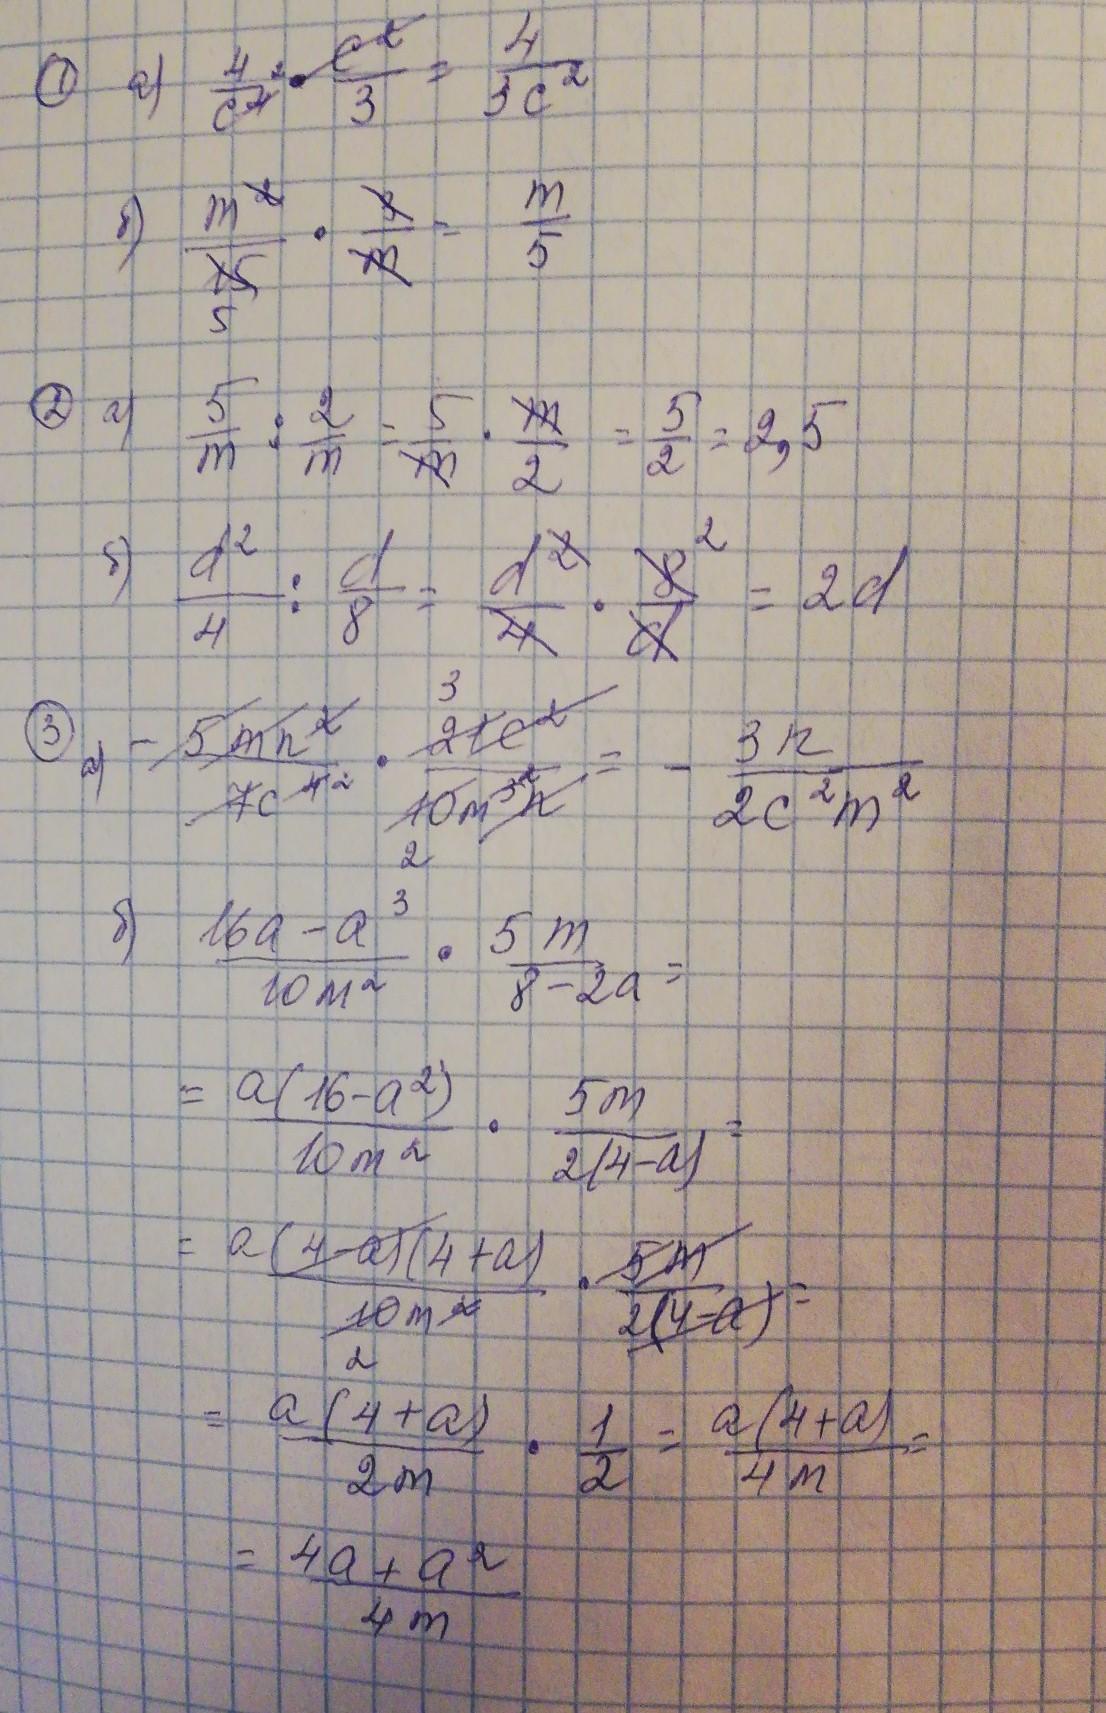 ① а) 4/c⁴ ² · c²/3 = 4/3c²
б) m²/15 · 3/m = m/5
5
② а) 5/m : 2/m = 5/m · m/2 = 5/2 = 2,5
б) d²/4 : d/8 = d²/4 · 8/d ² = 2d
③ а) - 5mn²/7c⁴ ² · 3 21c²/10m³ ²n 2 = - 3n/2c²m²
б) 16a - a³/10m² · 5m/8-2a =
= a(16-a²)/10m² · 5m/2(4-a) =
= a(4-a)(4+a)/10m² · 5m/2(4-a) =
2
= a(4+a)/2m · 1/2 = a(4+a)/4m =
= 4a+a²/4m